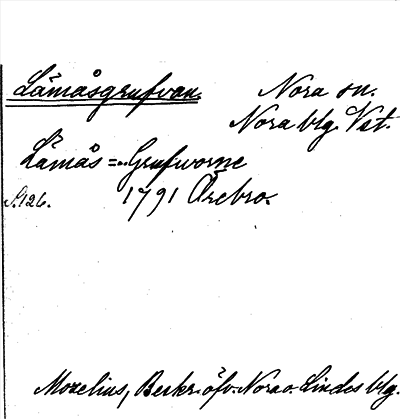 Låmåsgrufvan. Nora sn.
Nora blg. Vst.
Låmås=Grufworne
S.126. 1791 Örebro.
Mozelius, Beskr. öfv. Nora o. Lindes blg.